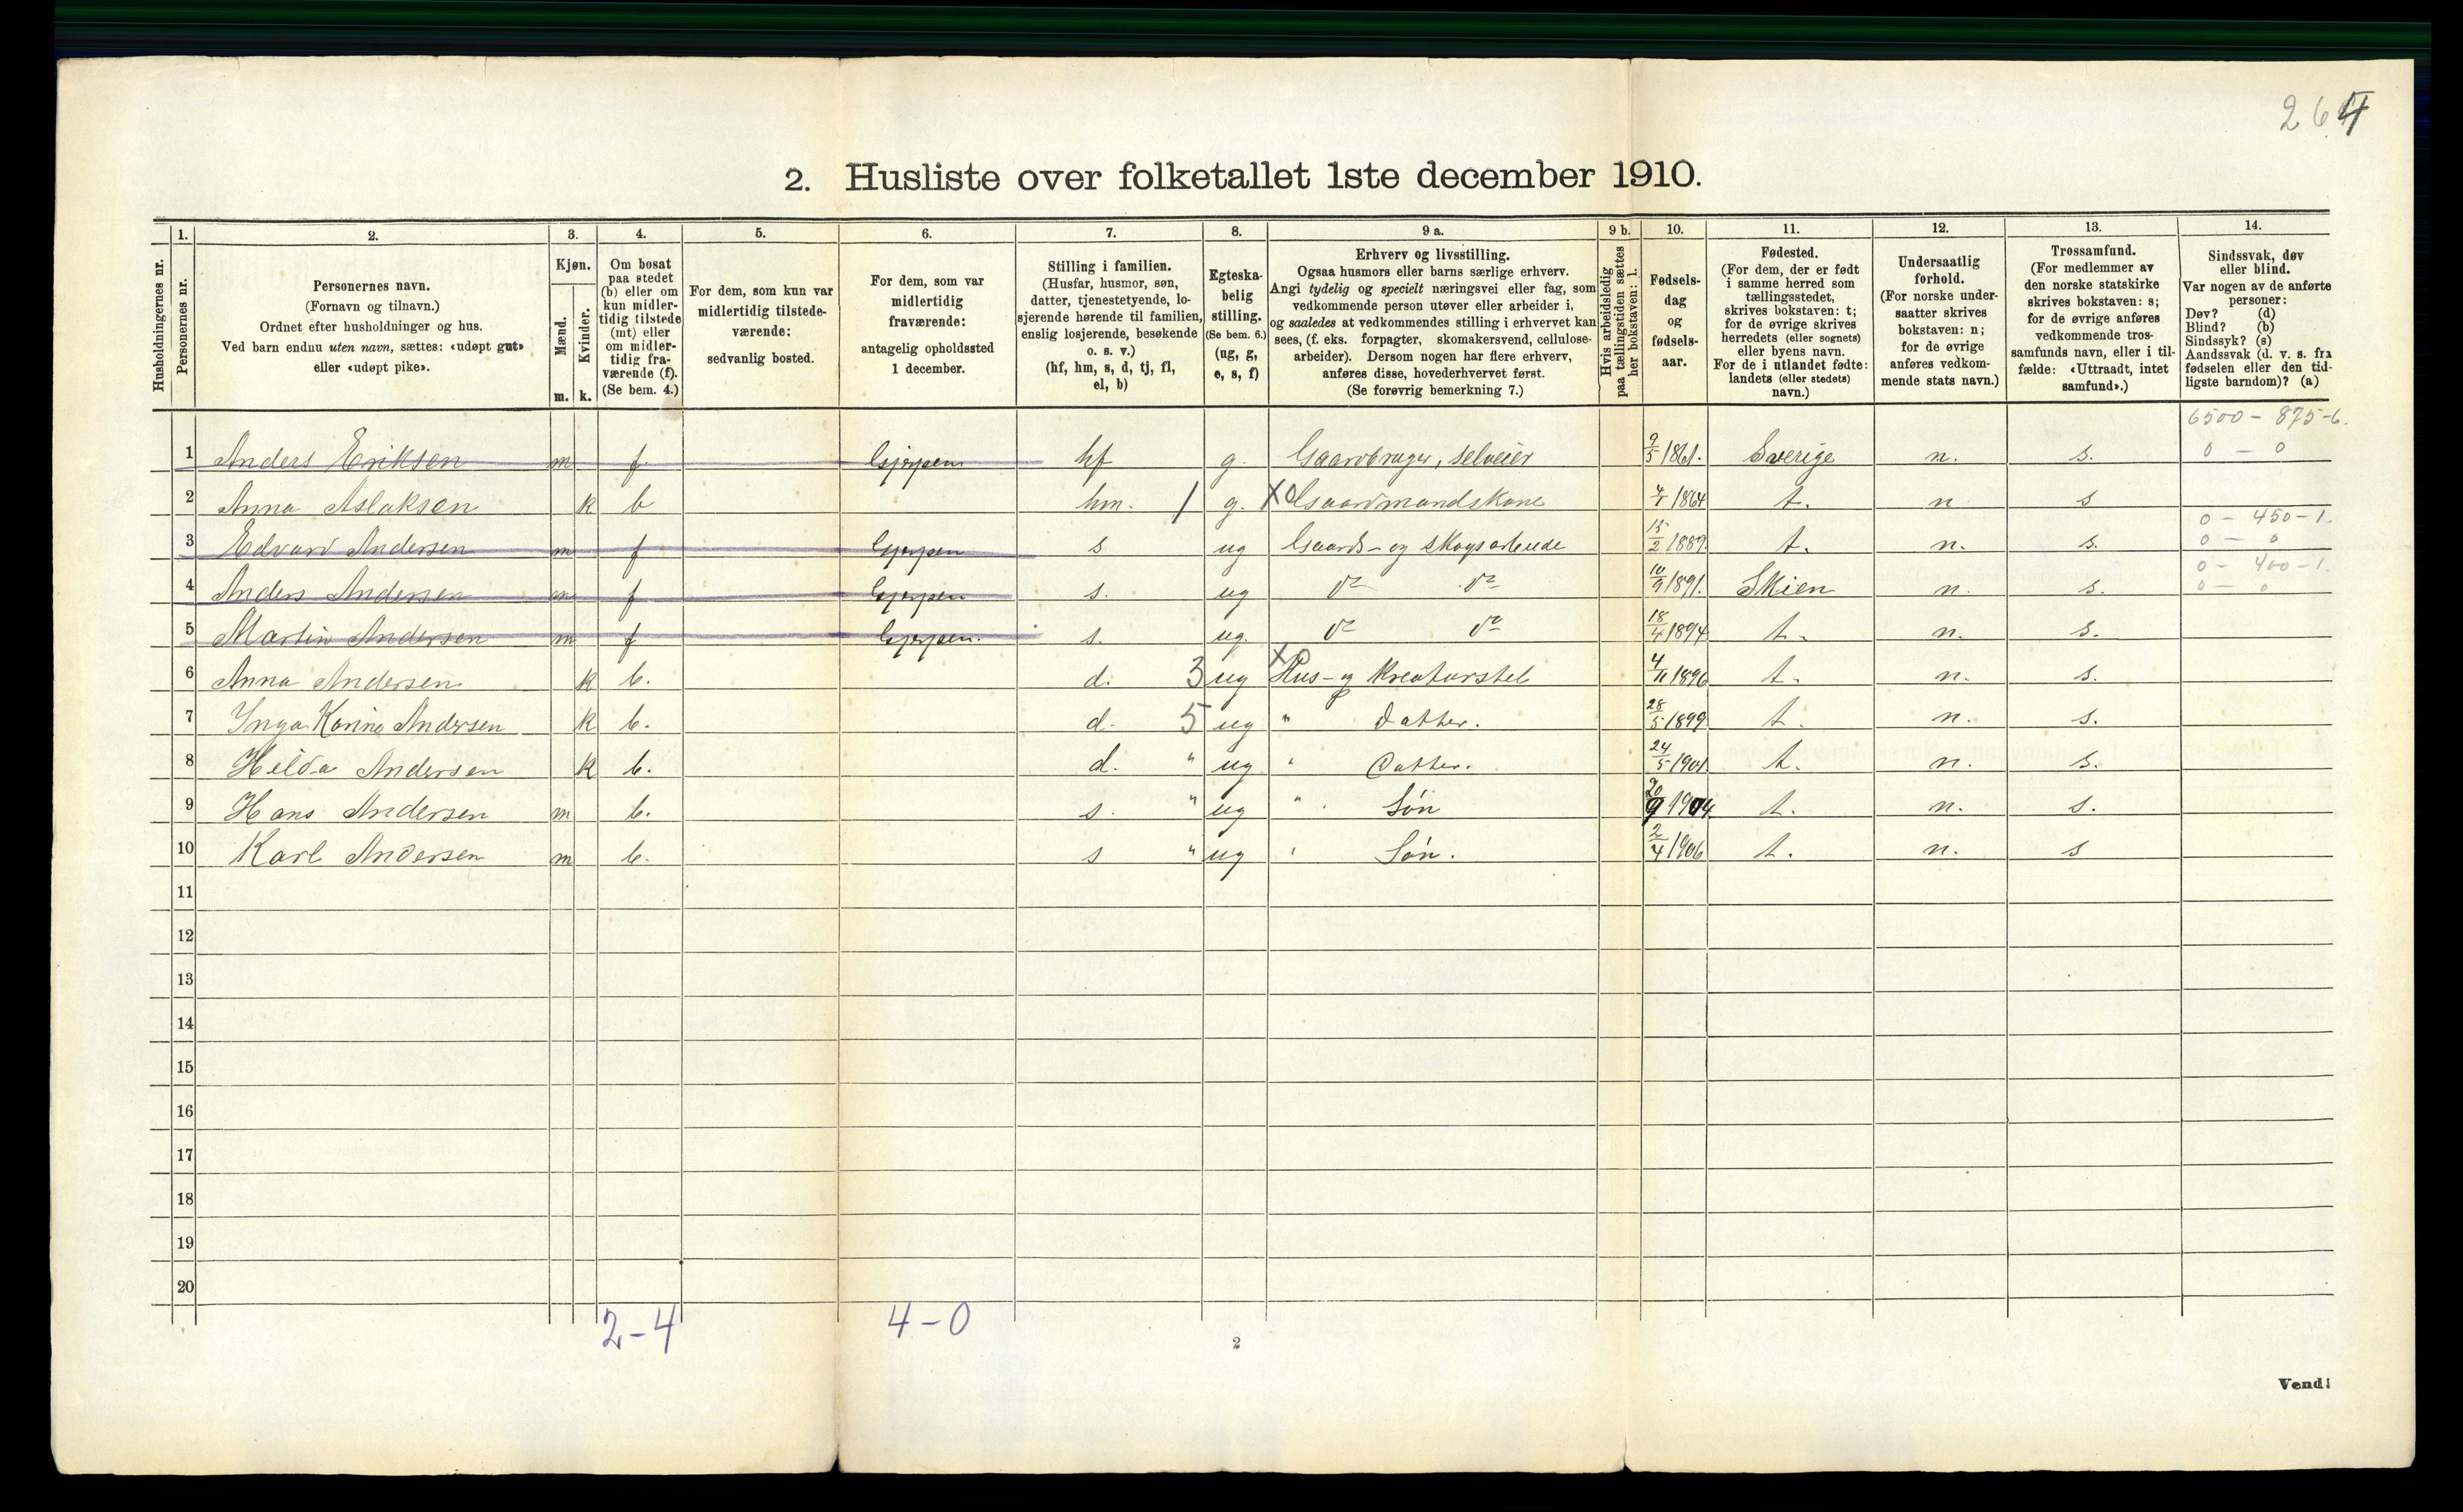 264
2. Husliste over folketallet 1ste december 1910.
Husholdningernes nr.
1. Personernes nr.
2. Personernes navn. (Fornavn og tilnavn.) Ordnet efter husholdninger og hus. Ved barn endnu uten navn, sættes: «udøpt gut» eller «udøpt pike».
3. Kjøn. Mænd. m. Kvinder. k.
4. Om bosat paa stedet (b) eller om kun midlertidig tilstede (mt) eller om midlertidig fraværende (f). (Se bem. 4.)
5. For dem, som kun var midlertidig tilstedeværende: sedvanlig bosted.
6. For dem, som var midlertidig fraværende: antagelig opholdssted 1 december.
7. Stilling i familien. (Husfar, husmor, søn, datter, tjenestetyende, losjerende hørende til familien, enslig losjerende, besøkende o. s. v.) (hf, hm, s, d, tj, fl, el, b)
8. Egteskabelig stilling. (Se bem. 6.) (ug, g, e, s, f)
9 a. Erhverv og livsstilling. Ogsaa husmors eller barns særlige erhverv. Angi tydelig og specielt næringsvei eller fag, som vedkommende person utøver eller arbeider i, og saaledes at vedkommendes stilling i erhvervet kan sees, (f. eks. forpagter, skomakersvend, cellulosearbeider). Dersom nogen har flere erhverv, anføres disse, hovederhvervet først. (Se forøvrig bemerkning 7.)
9 b. Hvis arbeidsledig paa tællingstiden sættes her bokstaven: l.
10. Fødselsdag og fødselsaar.
11. Fødested. (For dem, der er født i samme herred som tællingsstedet, skrives bokstaven: t; for de øvrige skrives herredets (eller sognets) eller byens navn. For de i utlandet fødte: landets (eller stedets) navn.)
12. Undersaatlig forhold. (For norske undersaatter skrives bokstaven: n; for de øvrige anføres vedkommende stats navn.)
13. Trossamfund. (For medlemmer av den norske statskirke skrives bokstaven: s; for de øvrige anføres vedkommende trossamfunds navn, eller i tilfælde: «Uttraadt, intet samfund».)
14. Sindssvak, døv eller blind. Var nogen av de anførte personer: Døv? (d) Blind? (b) Sindssyk? (s) Aandssvak (d. v. s. fra fødselen eller den tidligste barndom)? (a)
6500 - 875-6.
1 Anders Eriksen m f Gjerpen hf g. Gaardbruger, selveier 9/5 1861. Sverige n. s. 0 - 0
2 Anna Aslaksen k b hm. 1 g. X0 Gaardmandskone 4/1 1864 t. n s
0 - 450-1.
3 Edvard Andersen m f Gjerpen s ug Gaards- og skogsarbeide 15/2 1889. t. n. s. 0 - 0
0 - 400-1.
4 Anders Andersen m f Gjerpen s. ug do do 10/9 1891. Skien n. s. 0 - 0
5 Martin Andersen m f Gjerpen. s. ug. do do 18/4 1894 t. n. s.
6 Anna Andersen k b. d. 3 ug X0 Hus- og kreaturstel 4/11 1896 t. n. s.
7 Inga Karine Andersen k b. d. 5 ug " Datter. 28/5 1899 t. n. s.
8 Hilda Andersen k b. d. " ug " Datter. 24/5 1901. t. n. s.
9 Hans Andersen m b. s. " ug " Søn 20/9 1904. t. n. s.
10 Karl Andersen m b. s " ug " Søn. 2/4 1906 t. n. s
11
12
13
14
15
16
17
18
19
20
2-4 4-0
2
Vend!